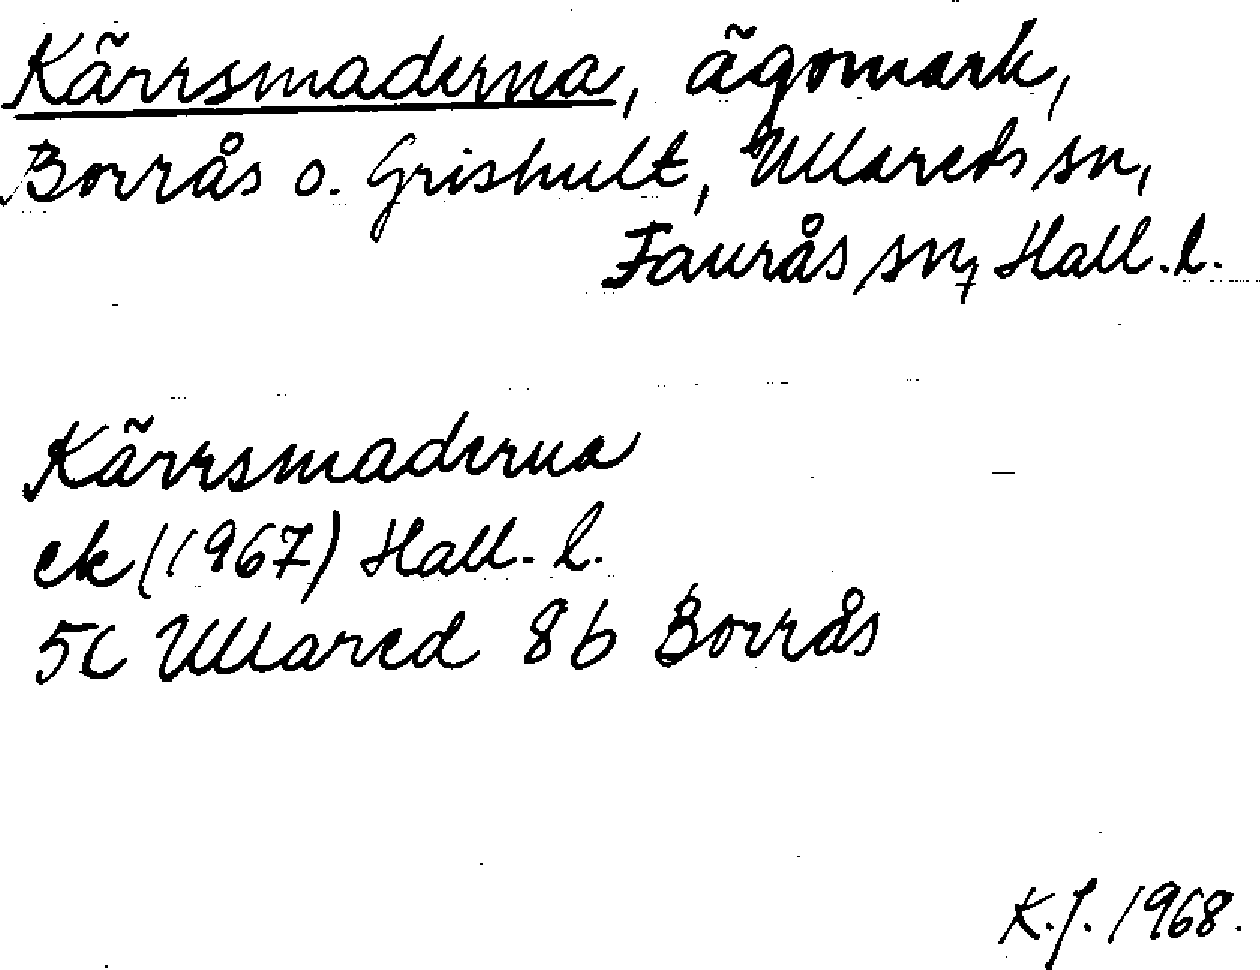 Kärrsmaderna, ägomark,
Borrås o. Grishult, Ullareds sn,
Faurås sn, Hall. l.
Kärrsmaderna
ek (1967) Hall. l.
5C Ullared 8b Borrås
K.J. 1968.